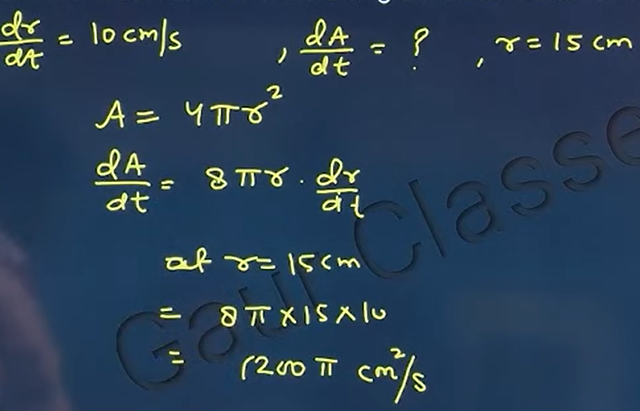 dr/dt = 10 cm/s , dA/dt = ? , r = 15 cm
A = 4πr²
dA/dt = 8πr · dr/dt
at r = 15 cm
= 8π × 15 × 10
= 1200 π cm²/s
Gaur Classe